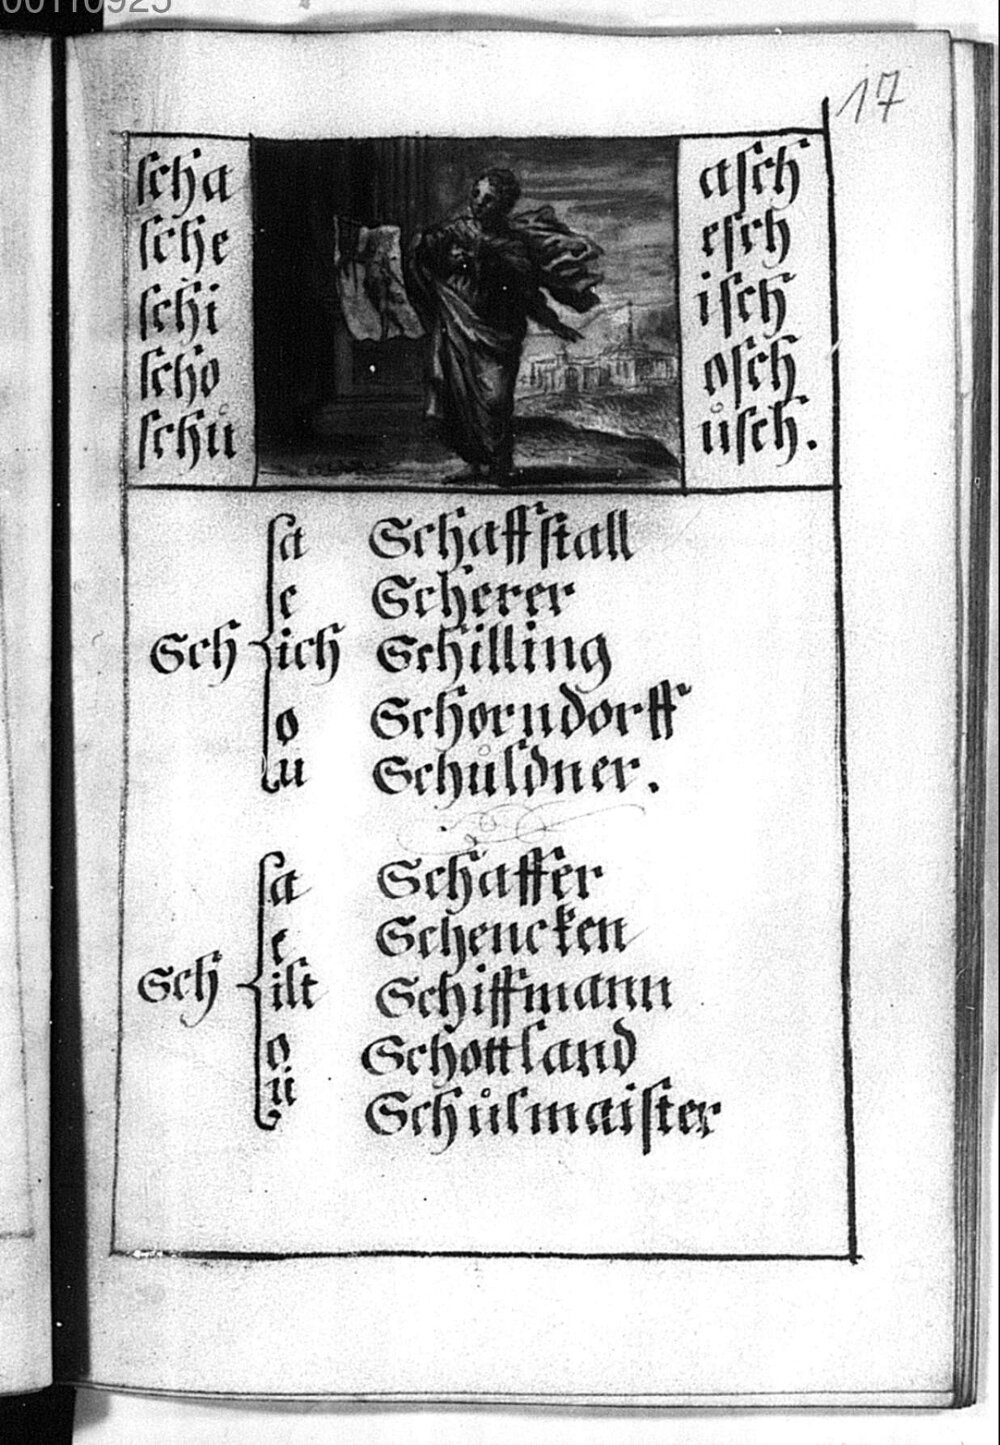 00110925
17
scha
sche
schi
scho
schů
asch
esch
isch
osch
ůsch.
a Schaffstall
e Scherer
Sch ich Schilling
o Schorndorff
u Schůldner.
a Schaffer
e Schencken
Sch ist Schiffmann
o Schottland
ü Schůlmaister